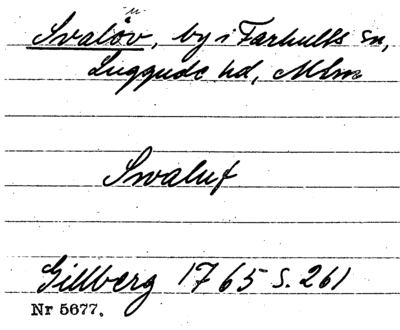 Svalöv, by i Farhults sn,
Luggude hd, Mlm
Swaluf
Gillberg 1765 s. 261
Nr 5677.